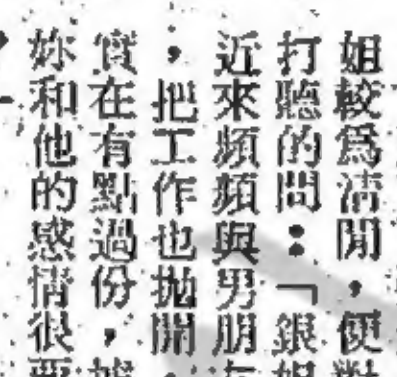 姐較為清閒，便對
打聽的問：「銀姐
近來頻頻與男朋
，把工作也拋開，
實在有點過份，據
妳和他的感情很要